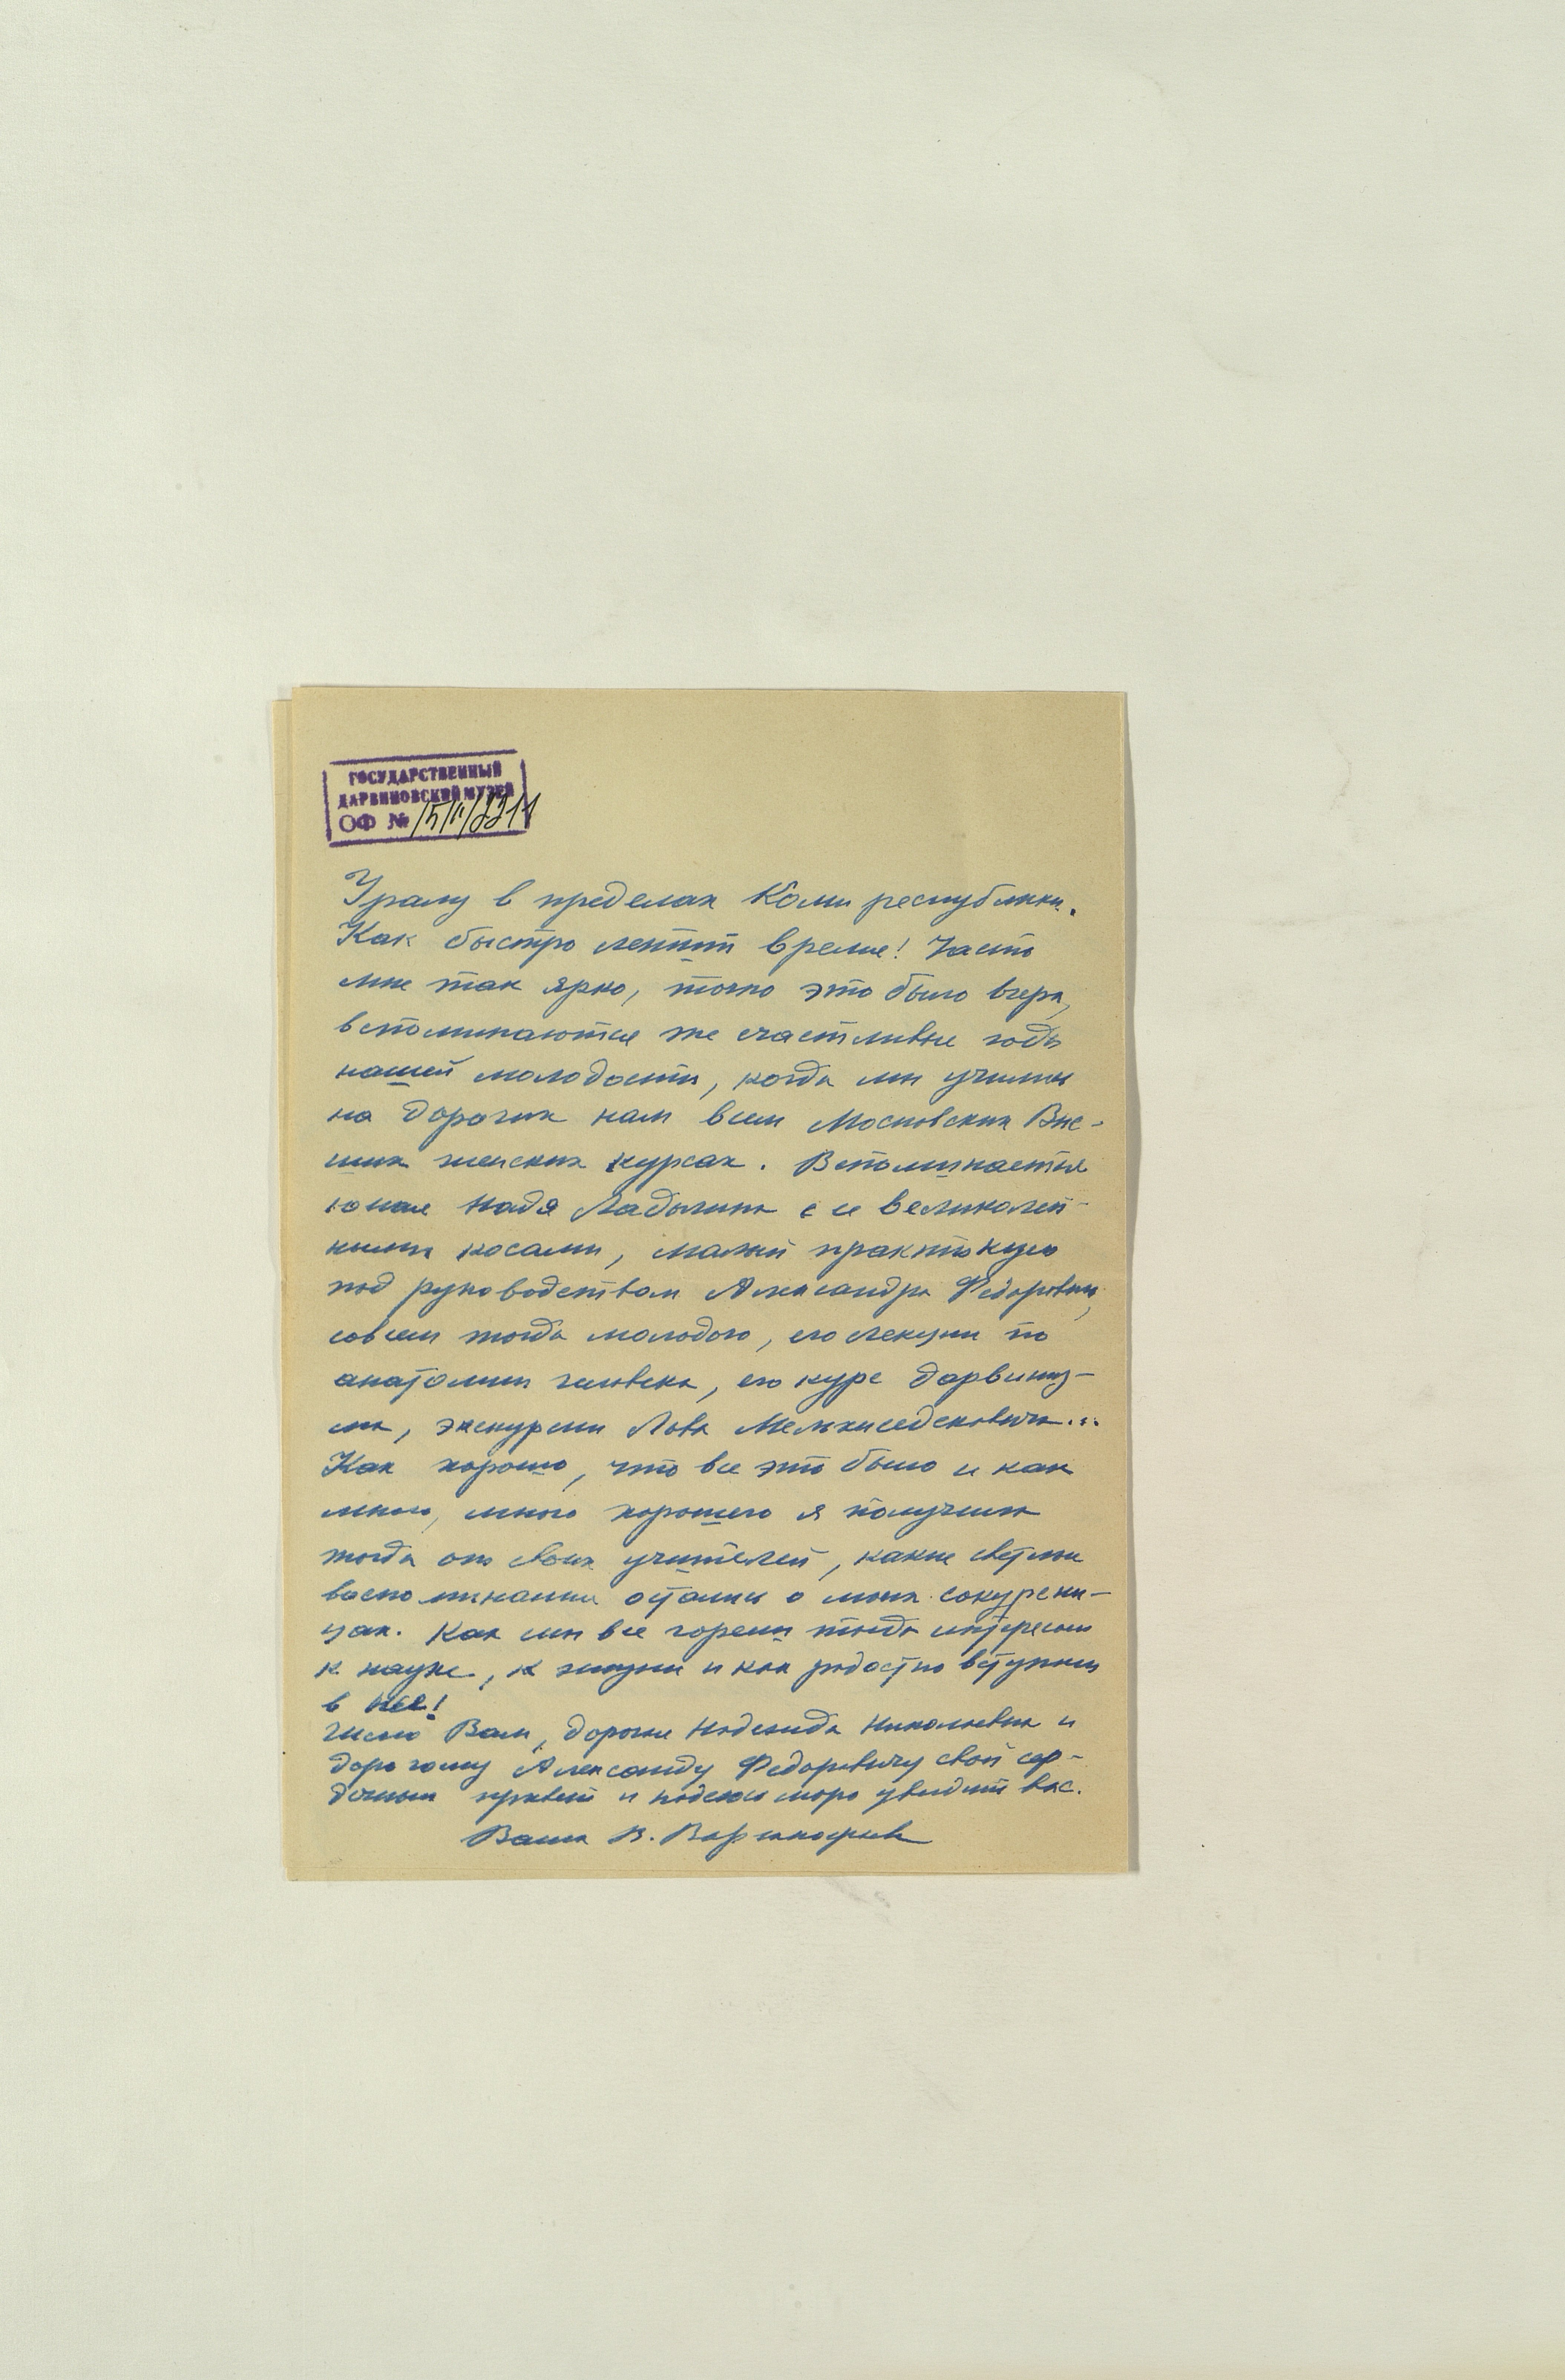 ГОСУДАРСТВЕННЫЙ
ДАРВИНОВСКИЙ МУЗЕЙ
ОФ №
Уралу в пределах Коми республики.
Как быстро летит время! Часто
мне так ярко, точно это было вчера,
вспоминаются же счастливые годы
нашей молодости, когда мы учились
на дорогих нам всем Московских Выс-
ших женских курсах. Вспоминается
юная Надя Ладыгина с ее великолеп-
ными косами, малый практикум
под руководством Александра Федоровича,
совсем тогда молодого, его лекции по
анатомии человека, его курс дарвиниз-
ма, экскурсии Льва Мельхиседековича...
Как хорошо, что все это было и как
много, много хорошего я получила
тогда от своих учителей, какие светлые
воспоминания остались о моих сокурсни-
цах. Как мы все горели тогда интересом
к науке, к жизни и как радостно вступали
в нее!
Вам, дорогая Надежда Николаевна и
дорогому Александру Федоровичу свой сер-
дечный привет и надеюсь скоро увидеть вас.
Ваша В. Варсанофьева